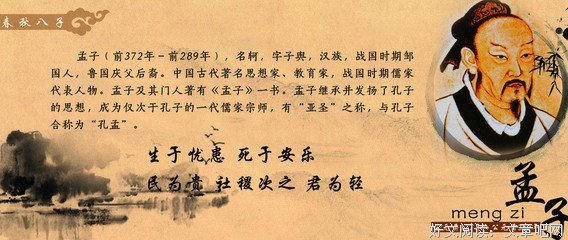 春秋八子
孟子（前372年－前289年），名轲，字子舆，汉族，战国时期邹
国人，鲁国庆父后裔。中国古代著名思想家、教育家，战国时期儒家
代表人物。孟子及其门人著有《孟子》一书。孟子继承并发扬了孔子
的思想，成为仅次于孔子的一代儒家宗师，有“亚圣”之称，与孔子
合称为“孔孟”。
生于忧患 死于安乐
民为贵 社稷次之 君为轻
孟子
meng zi
好文阅读：文章吧网